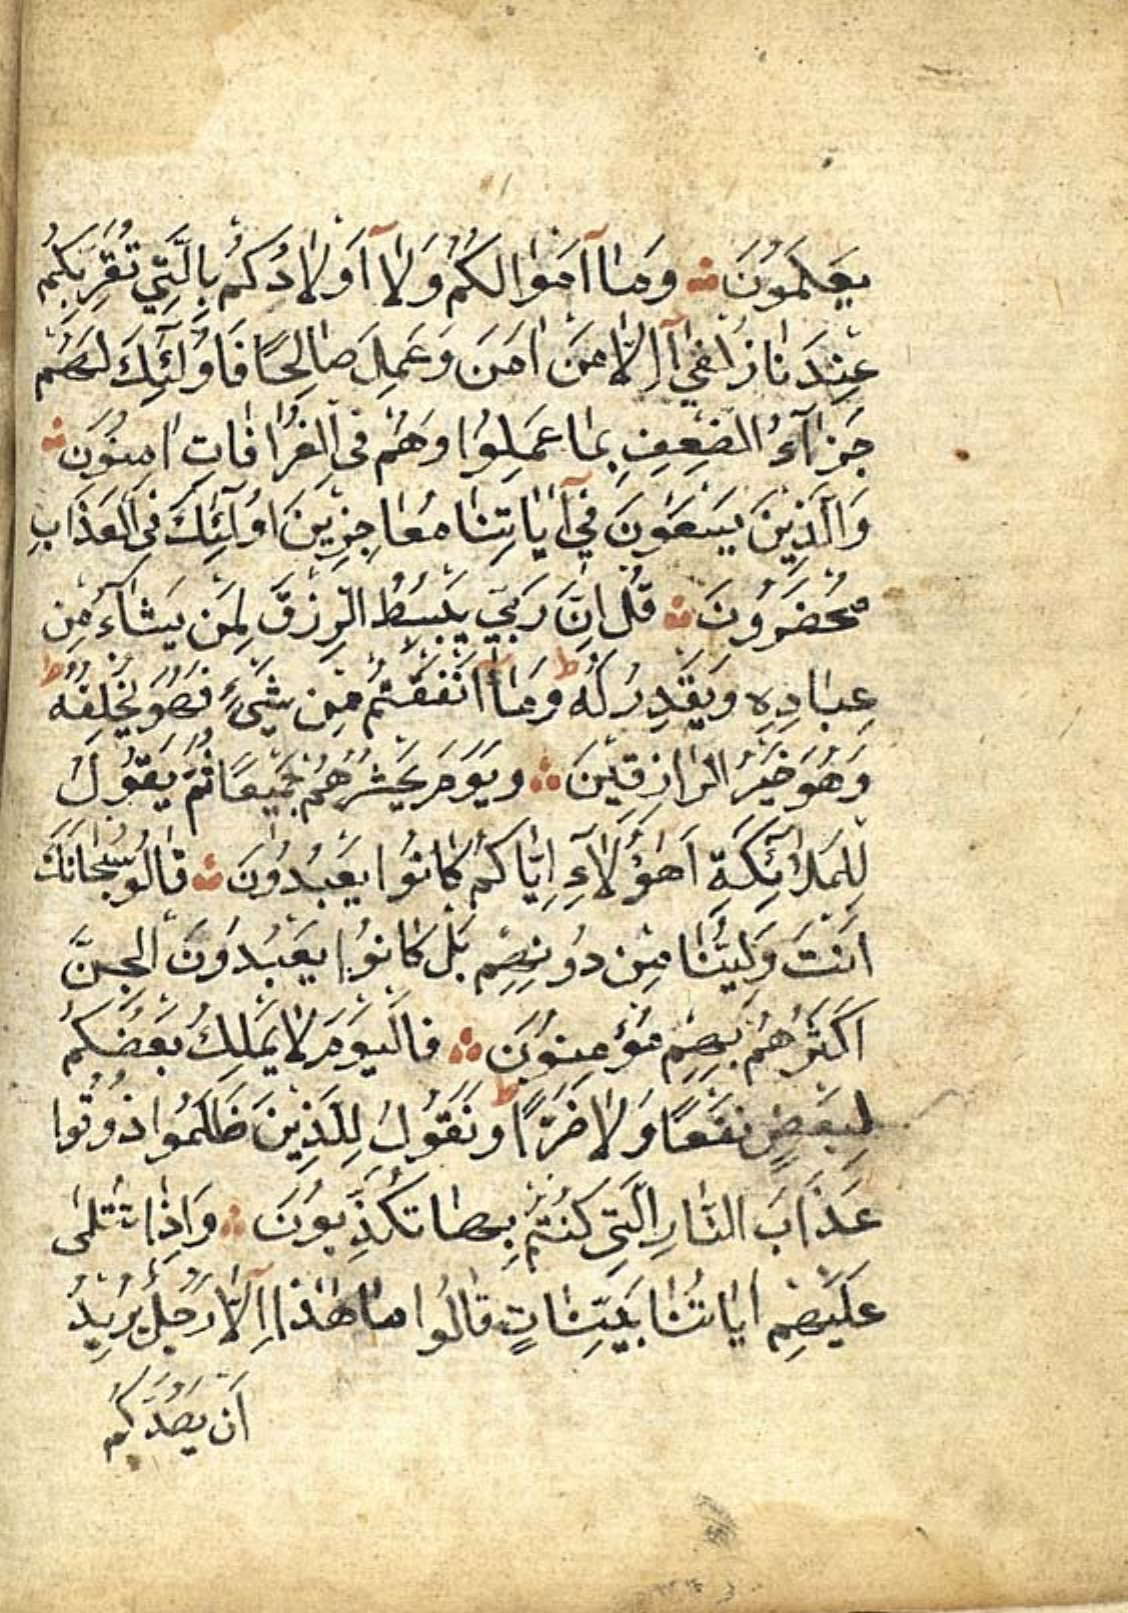 يَعْلَمُونَ ۞ وَمَاۤ اَمْوَالُكُمْ وَلَاۤ اَوْلَادُكُمْ بِالَّتِي تُقَرِّبُكُمْ
عِنْدَنَا زُلْفٰىۤ اِلَّا مَنْ اٰمَنَ وَعَمِلَ صَالِحًا فَاُولٰۤئِكَ لَهُمْ
جَزَاۤءُ الضِّعْفِ بِمَا عَمِلُوا وَهُمْ فِى الْغُرُفَاتِ اٰمِنُونَ ۞
وَالَّذِينَ يَسْعَوْنَ فِيۤ اٰيَاتِنَا مُعَاجِزِينَ اُولٰۤئِكَ فِى الْعَذَابِ
مُحْضَرُونَ ۞ قُلْ اِنَّ رَبِّي يَبْسُطُ الرِّزْقَ لِمَنْ يَشَاۤءُ مِنْ
عِبَادِهِ وَيَقْدِرُ لَهُ ط وَمَاۤ اَنْفَقْتُمْ مِنْ شَيْءٍ فَهُوَ يُخْلِفُهُ ط
وَهُوَ خَيْرُ الرَّازِقِينَ ۞ وَيَوْمَ يَحْشُرُهُمْ جَمِيعًا ثُمَّ يَقُولُ
لِلْمَلَاۤئِكَةِ اَهٰۤؤُلَاۤءِ اِيَّاكُمْ كَانُوا يَعْبُدُونَ ۞ قَالُو سُبْحَانَكَ
اَنْتَ وَلِيُّنَا مِنْ دُونِهِمْ بَلْ كَانُوا يَعْبُدُونَ الْجِنَّ
اَكْثَرُهُمْ بِهِمْ مُؤْمِنُونَ ۞ فَالْيَوْمَ لَا يَمْلِكُ بَعْضُكُمْ
لِبَعْضٍ نَفْعًا وَلَا ضَرًّا ط وَنَقُولُ لِلَّذِينَ ظَلَمُوا ذُوقُوا
عَذَابَ النَّارِ الَّتِي كُنْتُمْ بِهَا تُكَذِّبُونَ ۞ وَاِذَا تُتْلٰى
عَلَيْهِمْ اٰيَاتُنَا بَيِّنَاتٍ قَالُوا مَا هٰذَاۤ اِلَّا رَجُلٌ يُرِيدُ
اَنْ يَصُدَّكُمْ